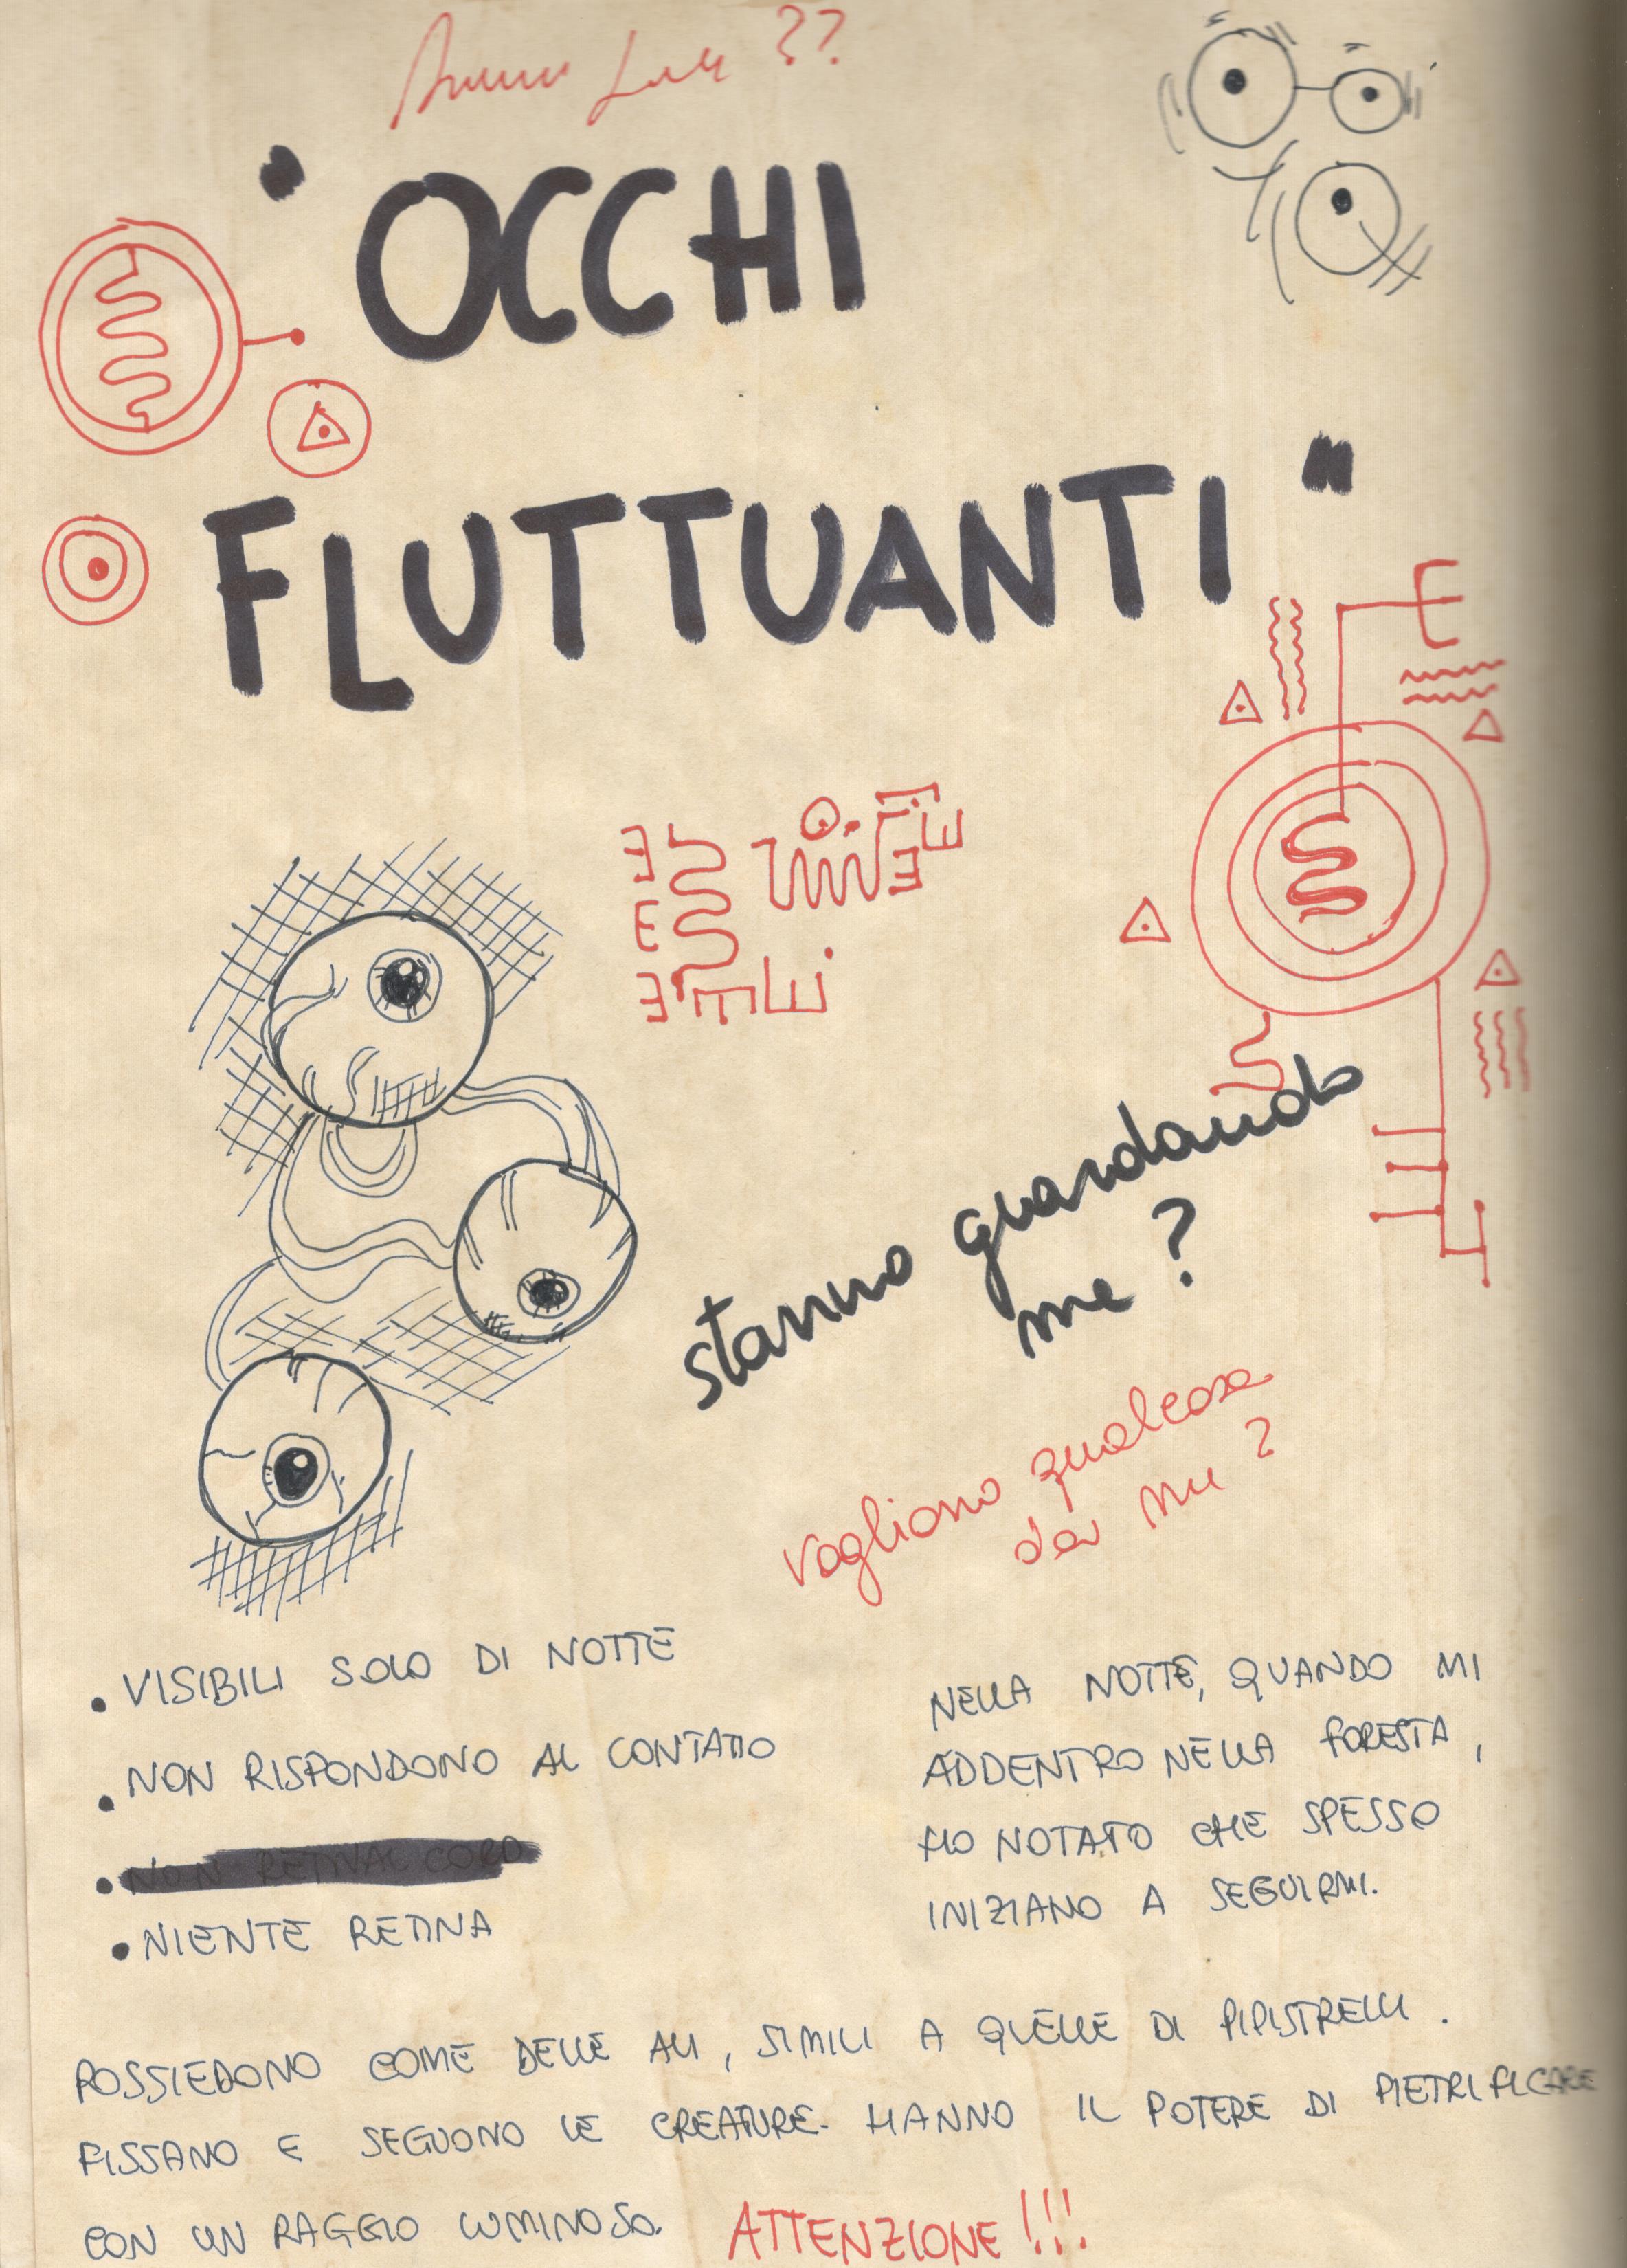 ??
"OCCHI
FLUTTUANTI"
stanno guardando
me?
vogliono qualcosa
da me?
• VISIBILI SOLO DI NOTTE
• NON RISPONDONO AL CONTATTO
• NON RETINAL CORD
• NIENTE RETINA
NELLA NOTTE, QUANDO MI
ADDENTRO NELLA FORESTA,
HO NOTATO CHE SPESSO
INIZIANO A SEGUIRMI.
POSSIEDONO COME DELLE ALI, SIMILI A QUELLE DI PIPISTRELLI.
FISSANO E SEGUONO LE CREATURE. HANNO IL POTERE DI PIETRIFICARE
CON UN RAGGIO LUMINOSO. ATTENZIONE!!!